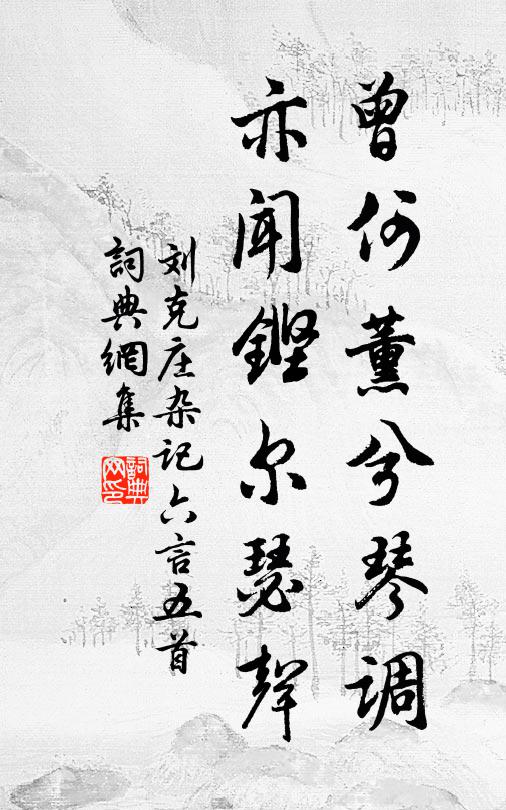 曾何薰兮琴调
亦闻铿尔瑟声
刘克庄杂记六言五首
詞典網集
詞典网印